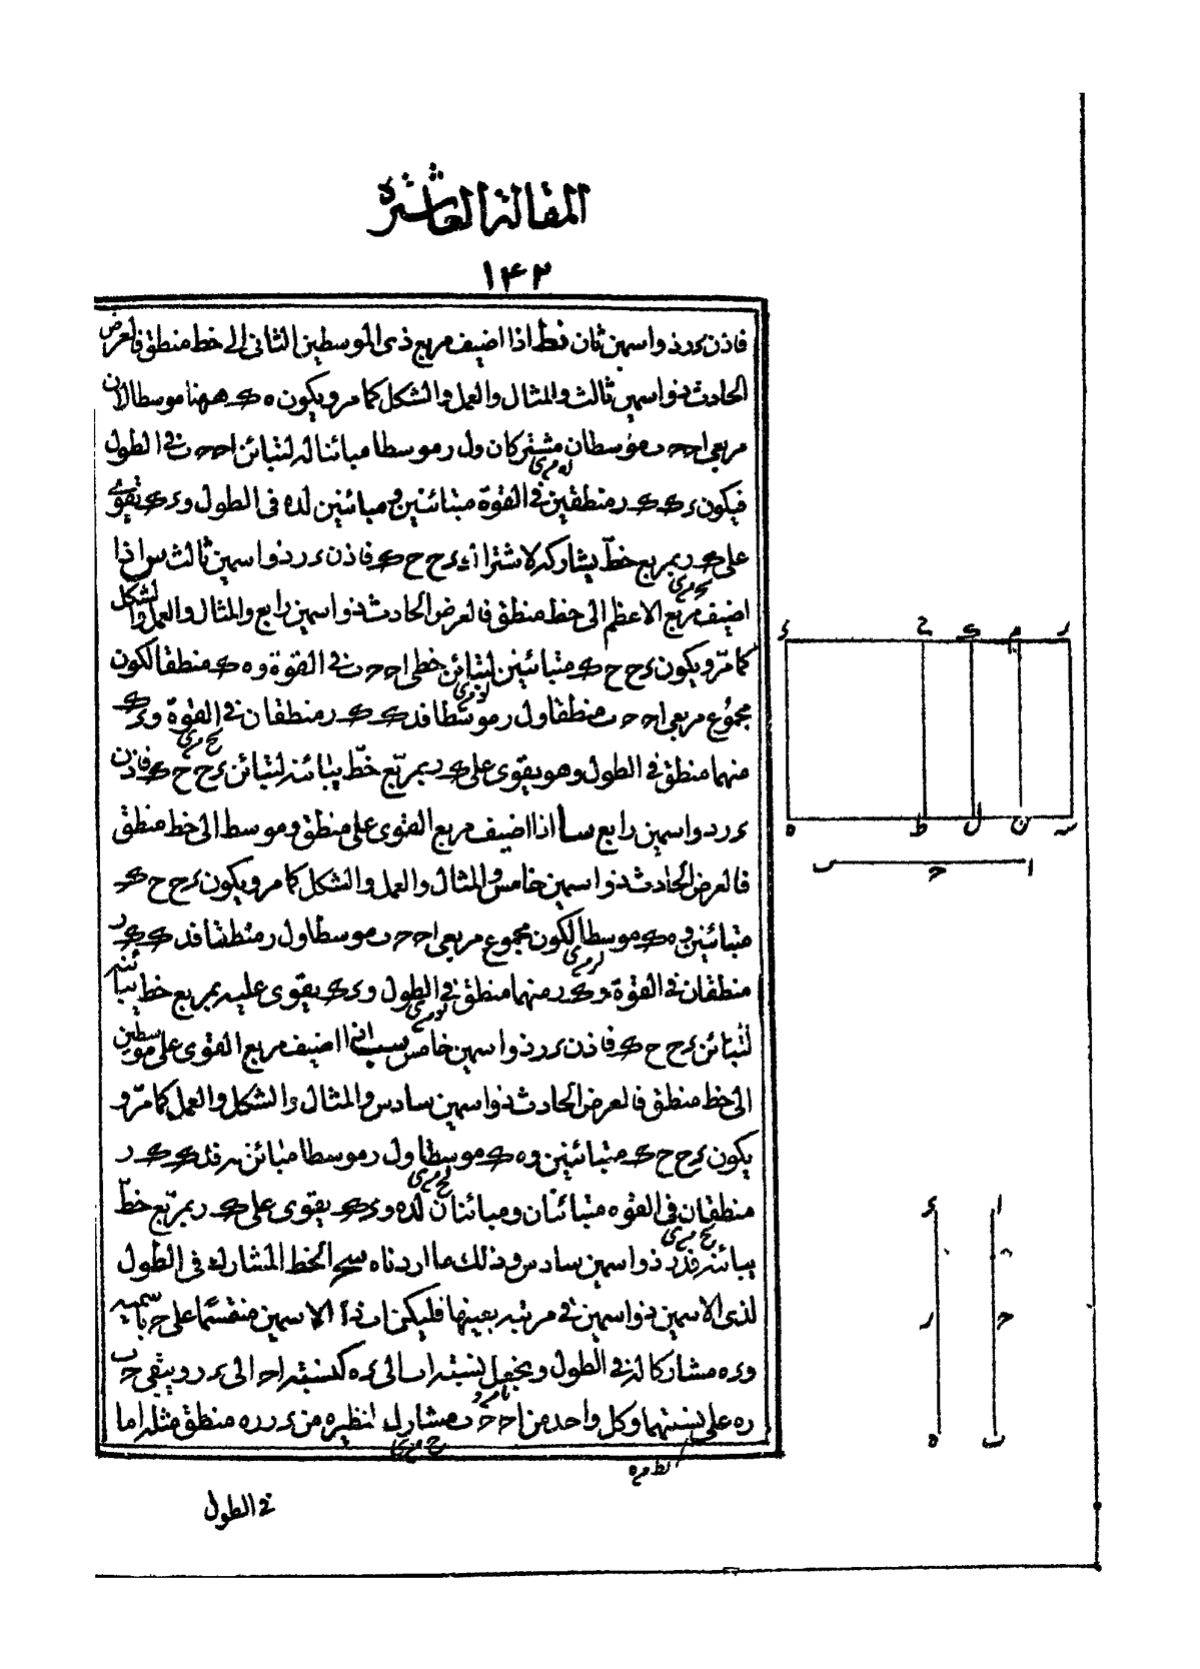 المقالة العاشرة
١٤٢
فاذن ءر ذو اسمين ثان نط اذا اضيف مربع ذى الموسطين الثانى الى خط منطق فالعرض
الحادث ذو اسمين ثالث والمثال والعمل والشكل كما مر ويكون ه ك ههنا موسطا لان
مربعى ا ح ح ب موسطان مشتركان ول ر موسطا مبائنا له لتبائن ا ح ح ب فى الطول
فيكون ء ك ك ر منطقين فى القوة متبائنين ومبائنين لده فى الطول وء ك يقوى
على ك ر بمربع خط يشاركه لاشتراك ء ح ح ك فاذن ء ر ذو اسمين ثالث س اذا
اضيف مربع الاعظم الى خط منطق فالعرض الحادث ذو اسمين رابع والمثال والعمل والشكل
كما مرّ ويكون ء ح ح ك متبائنين لتبائن خطى ا ح ح ب فى القوة وه ك منطقا لكون
مجموع مربعى ا ح ح ب منطقا ول ر موسطا فدك ك ر منطقان فى القوة وء ك
منهما منطق فى الطول وهو يقوى على ك ر بمربّع خطّ يبائنه لتبائن ء ح ح ك فاذن
ء ر ذو اسمين رابع سا اذا اضيف مربع القوى على منطق وموسط الى خط منطق
فالعرض الحادث ذو اسمين خامس والمثال والعمل والشكل كما مر ويكون ء ح ح ك
متبائنين وه ك موسطا لكون مجموع مربعى ا ح ح ب موسطا ول ر منطقا فدك ك ر
منطقان فى القوة وك ر منهما منطق فى الطول وء ك يقوى عليه بمربع خط يبائنه
لتبائن ء ح ح ك فاذن ء ر ذو اسمين خامس سب اذا اضيف مربع القوى على موسطين
الى خط منطق فالعرض الحادث ذو اسمين سادس والمثال والشكل والعمل كما مرّ و
يكون ء ح ح ك متبائنين وه ك موسطا ول ر موسطا مبائن له فدك ك ر
منطقان فى القوه متبائنان ومبائنان لده وء ك يقوى على ك ر بمربّع خطّ
يبائنه فدر ذو اسمين سادس وذلك ما اردناه سج الخط المشارك فى الطول
لذى الاسمين ذو اسمين فى مرتبته بعينها فليكن اب ذا الاسمين منقسمًا على ح باسميه
وءه مشاركا له فى الطول ونجعل نسبة اب الى ءه كنسبة اح الى ءر ويبقى ح ب
ره على نسبتهما وكل واحد من ا ح ح ب مشارك لنظيره من ء ر ره منطق مثله اما
فى الطول